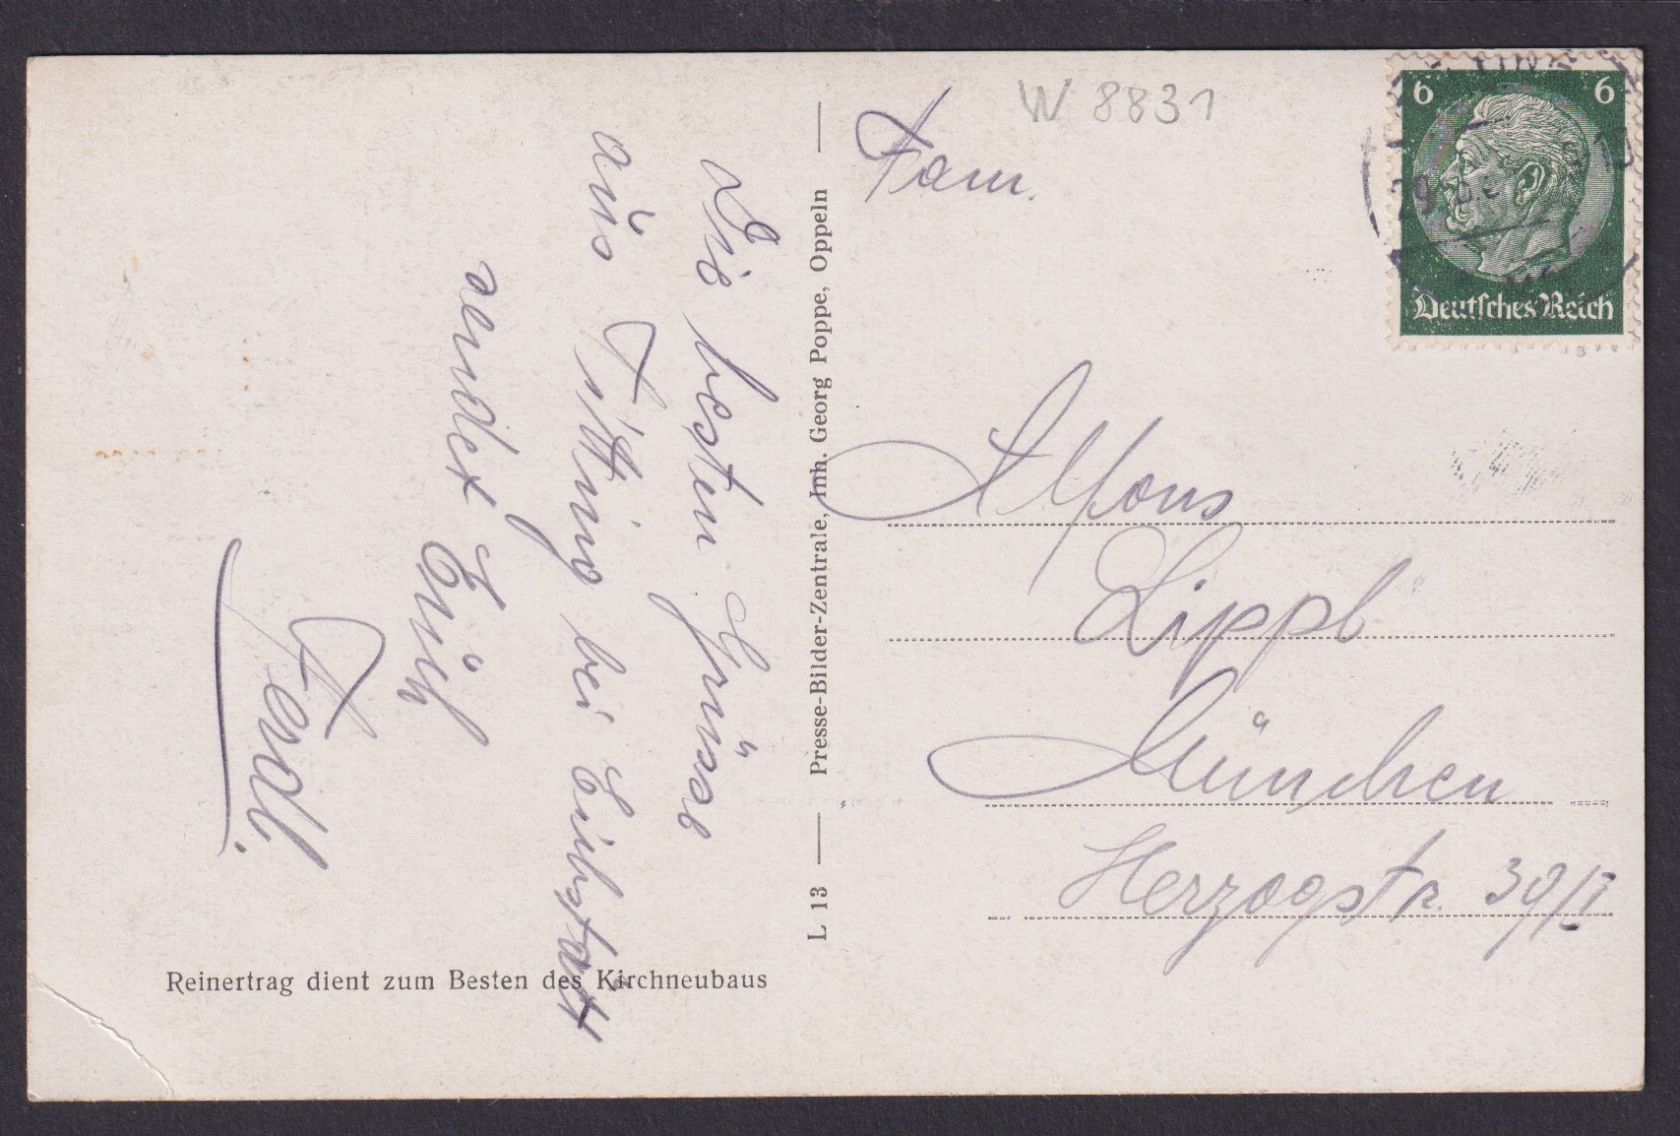 Die besten Grüsse
aus Titting bei Eichstätt
sendet Euch
Ferdl.
Reinertrag dient zum Besten des Kirchneubaus
L 13 — Presse-Bilder-Zentrale, Inh. Georg Poppe, Oppeln —
W 8831
6 6
Deutsches Reich
29
Fam.
Alfons
Lippl
München
Herzogstr. 39/I